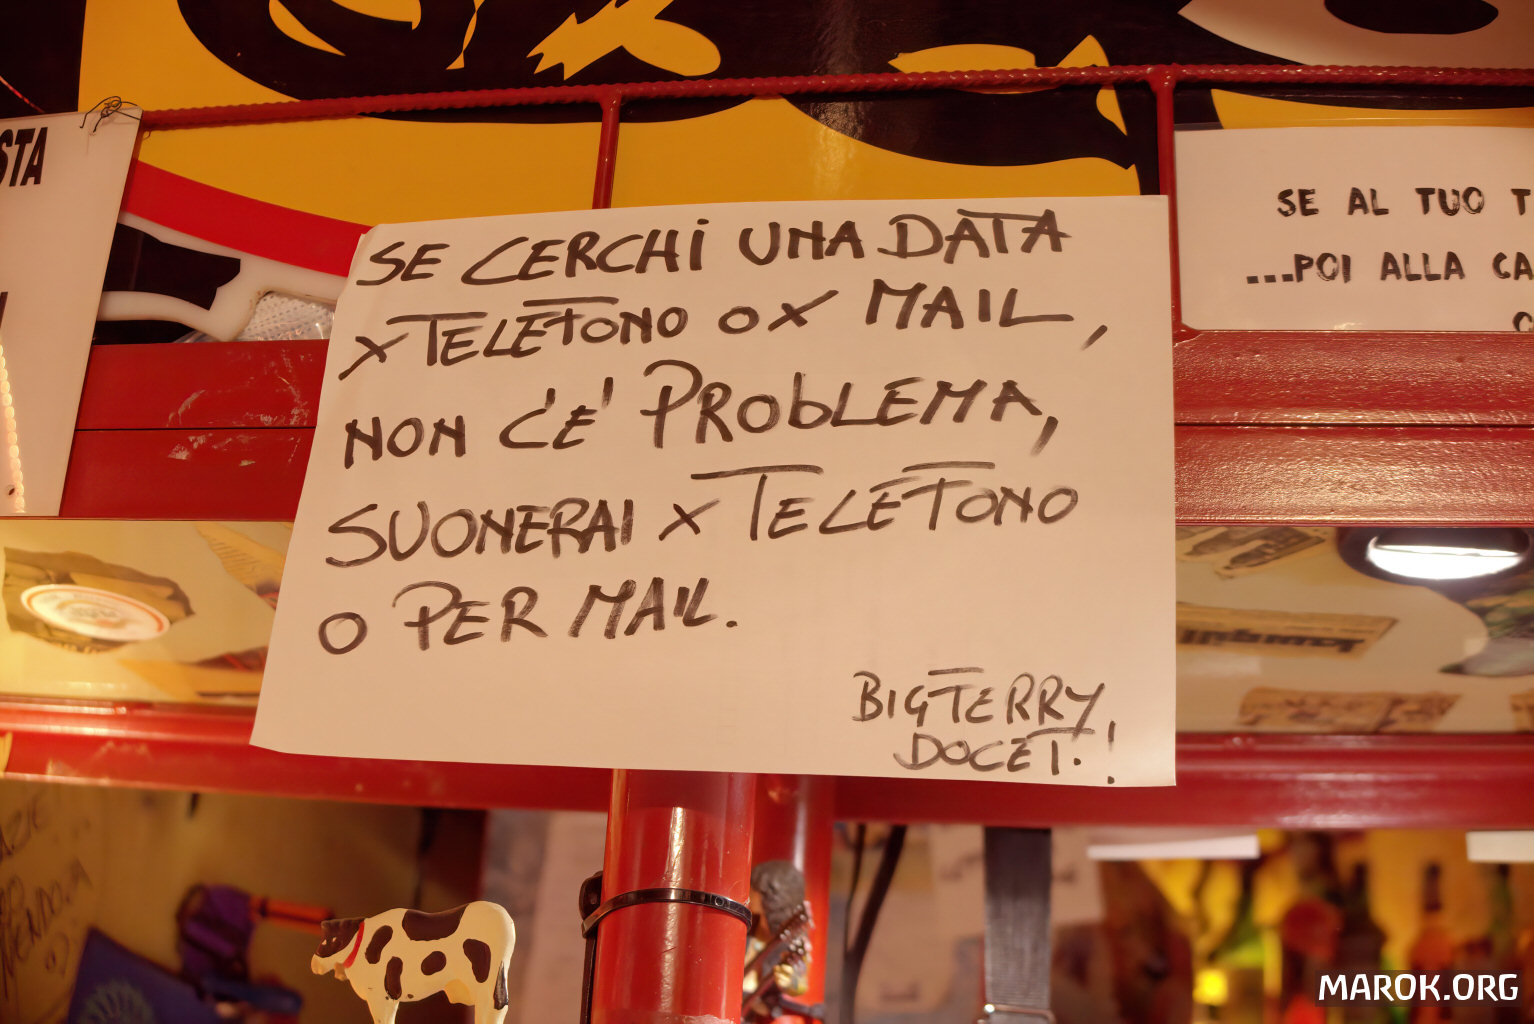 STA
SE CERCHI UNA DATA
x TELEFONO O x MAIL,
NON C'E' PROBLEMA,
SUONERAI x TELEFONO
O PER MAIL.
BIG TERRY
DOCET.!
SE AL TUO T
...POI ALLA CA
MAROK.ORG